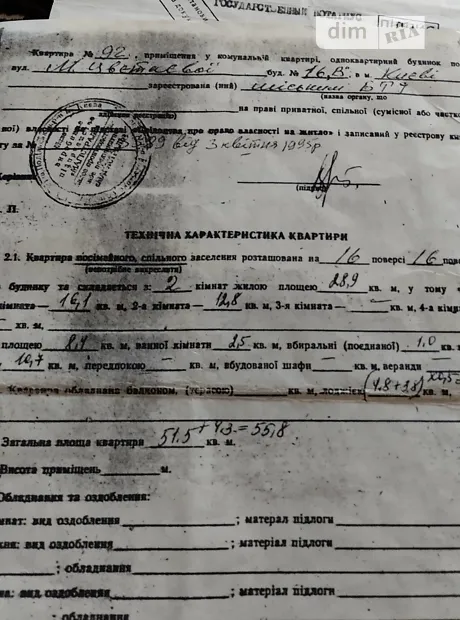 ГОСУДАРСТВЕННЫЙ НОТАРИУС
dim RIA
Квартира № 92, приміщення у комунальній квартирі, одноквартирний будинок по
вул. М. Цвєтаєвої буд. № 16 В, в м. Києві
зареєстрована (ний) міським БТІ
(назва органу, що
на праві приватної, спільної (сумісної або частко
власності на підставі свідоцтва про право власності на житло» і записаний у реєстрову кн
ту за № 99 від 3 квітня 1995р
(підпис)
М. П.
ТЕХНІЧНА ХАРАКТЕРИСТИКА КВАРТИРИ
2.1. Квартира посімейного, спільного заселення розташована на 16 поверсі 16 повер
(непотрібне викреслити)
будинку та складається з: 2 кімнат жилою площею 28,9 кв. м, у тому ч
кімната — 16,1 кв. м, 2-а кімната — 12,8 кв. м, 3-я кімната — кв. м, 4-а кімн
кв. м,
площею 8,4 кв. м, ванної кімнати 2,5 кв. м, вбиральні (поєднаної) 1,0 кв.
10,7 кв. м, передпокою кв. м, вбудованої шафи кв. м, веранди
Квартира обладнана балконом, (терасою) кв. м, лоджією (4.8+3.8) кв. м,
Загальна площа квартири 51.5+4.3=55,8 кв. м.
Висота приміщень м.
Обладнання та оздоблення:
кімнат: вид оздоблення ; матерал підлоги
кухня: вид оздоблення ; матеріал підлоги
; обладнання
на: вид оздоблення ; матеріал підлоги
; обладнання